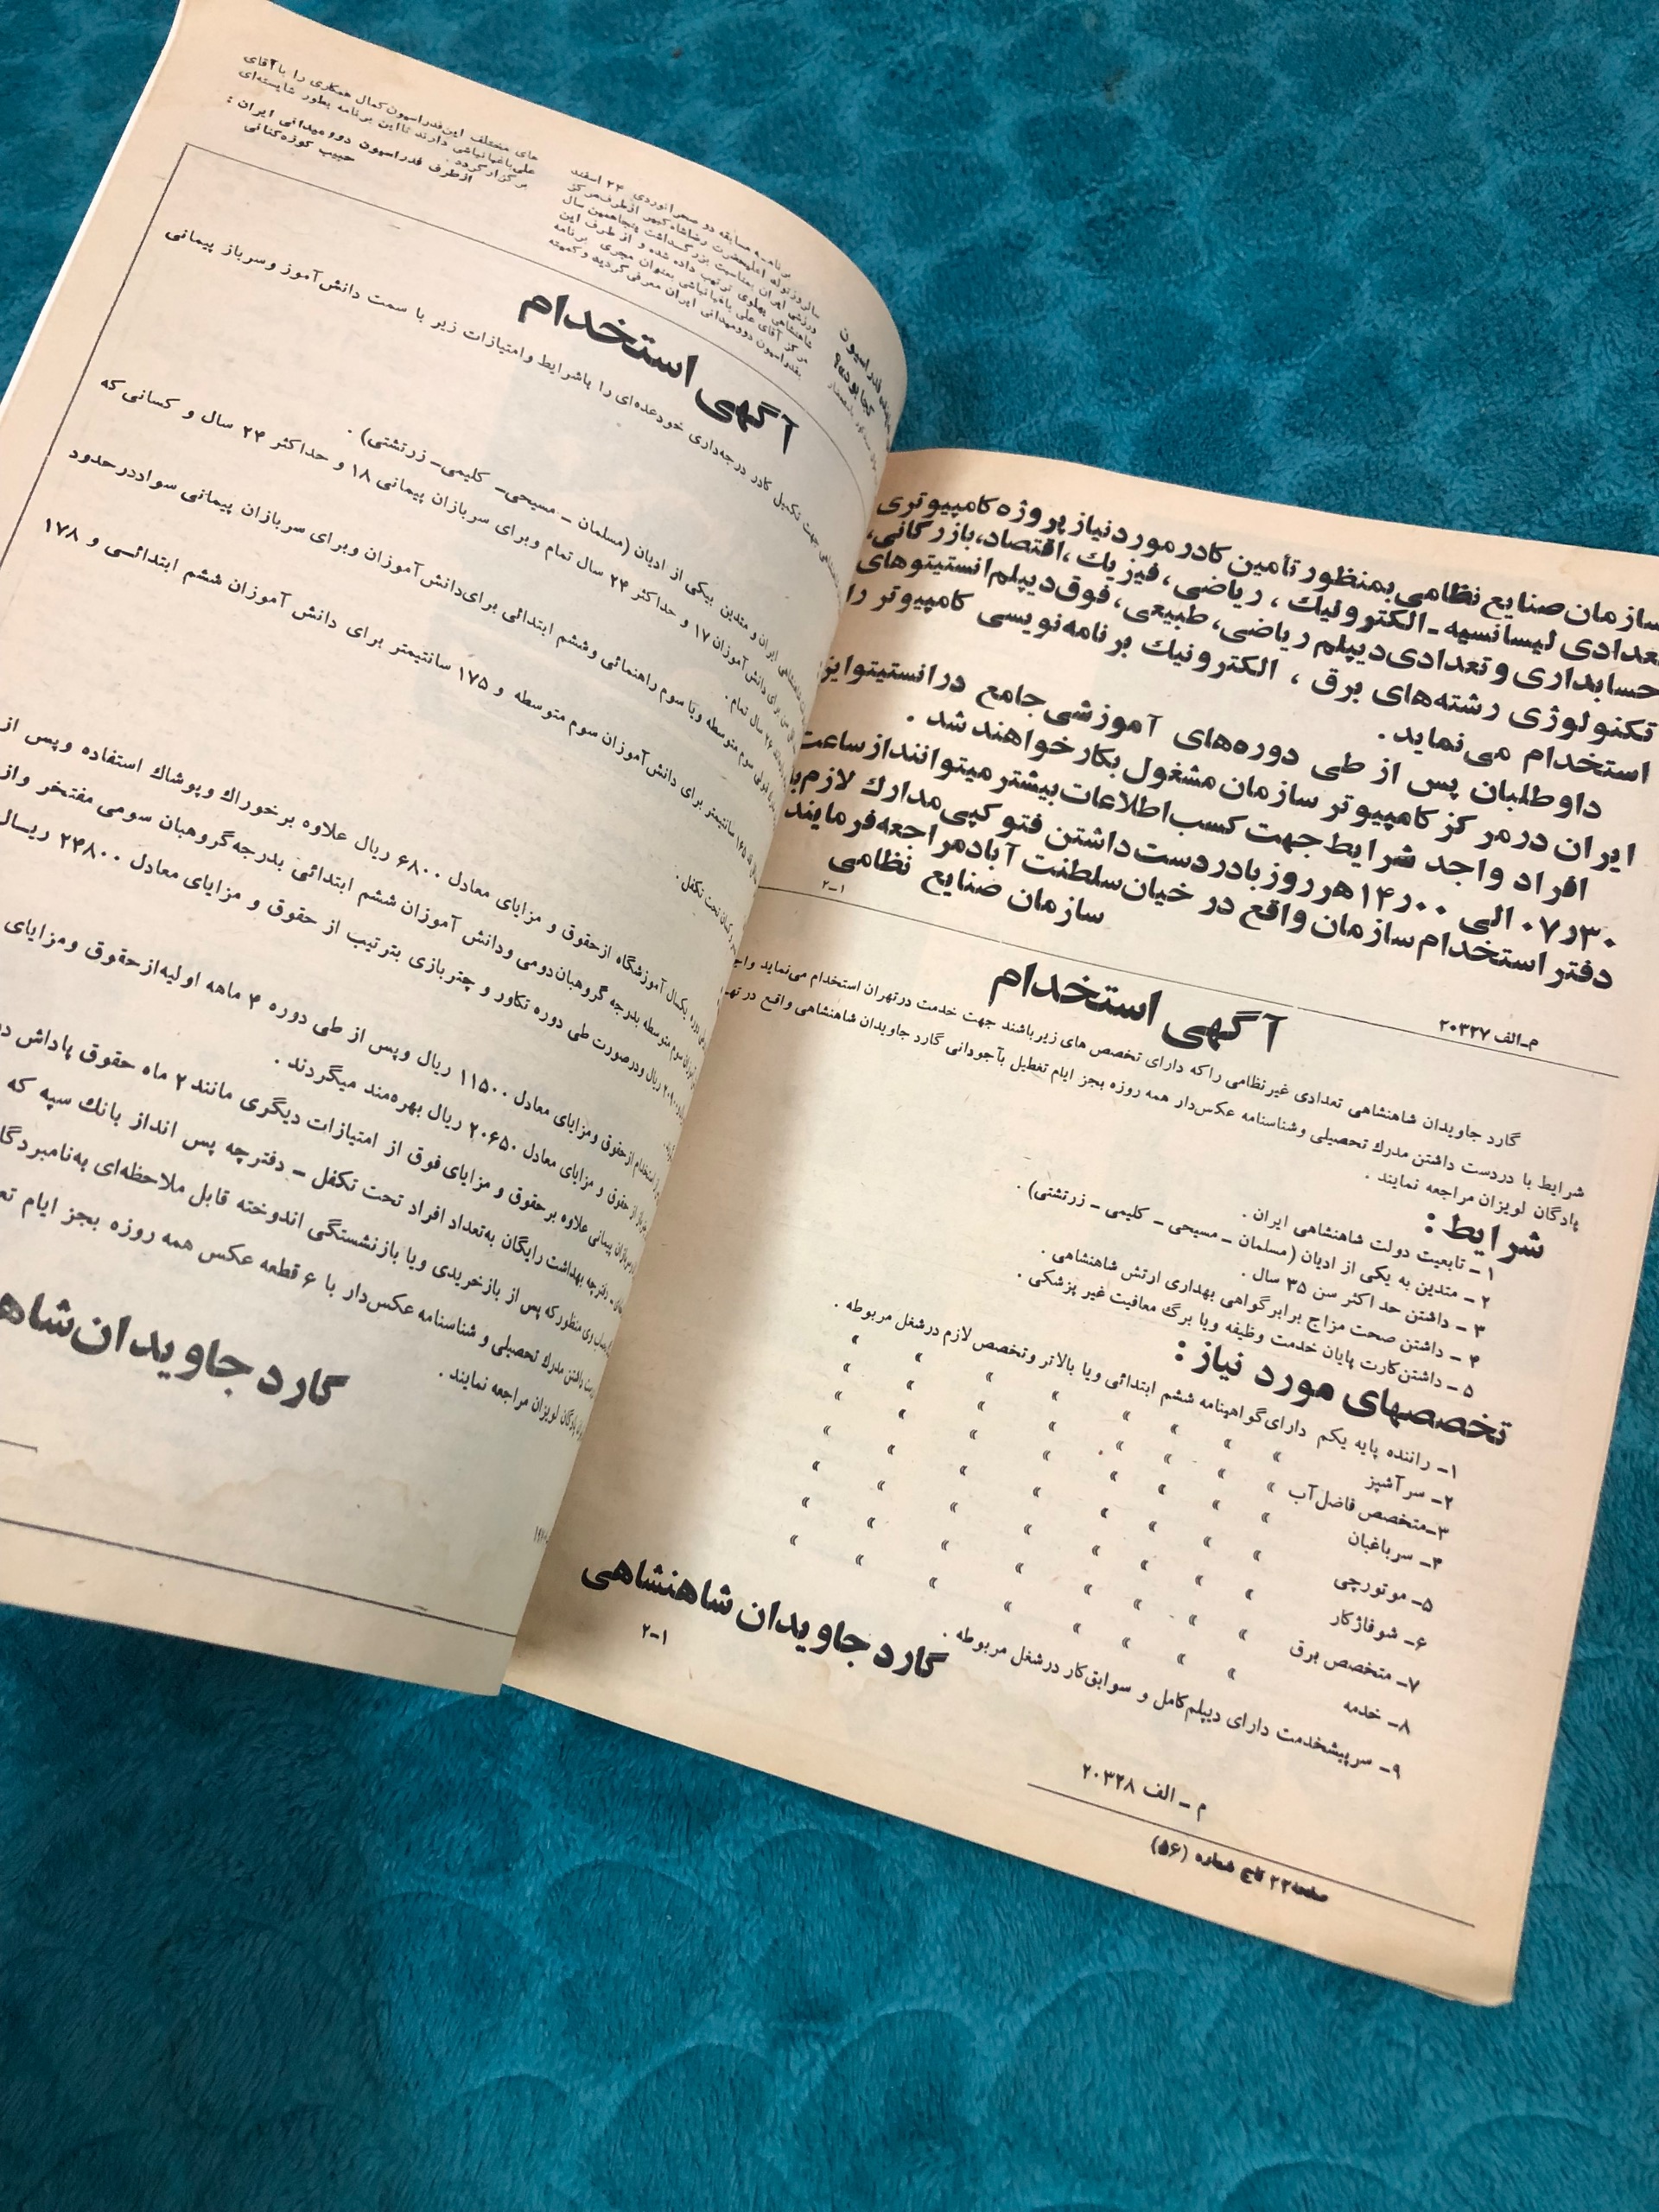 سازمان صنایع نظامی بمنظور تأمین کادر مورد نیاز پروژه کامپیوتری
تعدادی لیسانسیه - الکترونیك ، ریاضی ، فیزیك ، اقتصاد، بازرگانی،
حسابداری و تعدادی دیپلم ریاضی، طبیعی، فوق دیپلم انستیتوهای
تکنولوژی رشته‌های برق ، الکترونیك برنامه نویسی کامپیوتر را
استخدام می نماید .
داوطلبان پس از طی دوره‌های آموزشی جامع در انستیتو ایز
ایران در مرکز کامپیوتر سازمان مشغول بکار خواهند شد .
افراد واجد شرایط جهت کسب اطلاعات بیشتر میتوانند از ساعت
۰۷٫۳۰ الی ۱۴٫۰۰ هر روز با در دست داشتن فتوکپی مدارك لازم با
دفتر استخدام سازمان واقع در خیان سلطنت آباد مراجعه فرمایند
سازمان صنایع نظامی
م-الف ۲۰۳۲۷
۲-۱
آگهی استخدام
گارد جاویدان شاهنشاهی تعدادی غیر نظامی را که دارای تخصص های زیر باشند جهت خدمت در تهران استخدام می نماید
شرایط با در دست داشتن مدرك تحصیلی و شناسنامه عکس‌دار همه روزه بجز ایام تعطیل بآجودانی گارد جاویدان شاهنشاهی واقع در
پادگان لویزان مراجعه نمایند .
شرایط :
۱ - تابعیت دولت شاهنشاهی ایران .
۲ - متدین به یکی از ادیان (مسلمان - مسیحی - کلیمی - زرتشتی) .
۳ - داشتن حداکثر سن ۳۵ سال .
۴ - داشتن صحت مزاج برابر گواهی بهداری ارتش شاهنشاهی .
۵ - داشتن کارت پایان خدمت وظیفه ویا برگ معافیت غیر پزشکی .
تخصصهای مورد نیاز :
۱- راننده پایه یکم دارای گواهینامه ششم ابتدائی ویا بالاتر و تخصص لازم در شغل مربوطه .
۲- سرآشپز » » » » » » » »
۳- متخصص فاضل آب » » » » » » » »
۴- سرباغبان » » » » » » » »
۵- موتورچی » » » » » » » »
۶- شوفاژکار » » » » » » » »
۷- متخصص برق » » » » » » » »
۸- خدمه » » » » » » » »
۹- سرپیشخدمت دارای دیپلم کامل و سوابق کار در شغل مربوطه .
گارد جاویدان شاهنشاهی
۲-۱
م - الف ۲۰۳۲۸
صفحه ۲۲ تاج شماره (۵۶)
برنامه مسابقه دو صحرانوردی ۲۴ اسفند
سالروز تولد اعلیحضرت رضاشاه کبیر از طرف مرکز
ورزشی ایران بمناسبت بزرگداشت پنجاهمین سال
شاهنشاهی پهلوی ترتیب داده شده و از طرف این
مرکز آقای علی باغبانباشی بعنوان مجری برنامه
بفدراسیون دوومیدانی ایران معرفی گردید و کمیته
های مختلف این فدراسیون کمال همکاری را با آقای
علی باغبانباشی دارند تا این برنامه بطور شایسته‌ای
برگزار گردد .
از طرف فدراسیون دوومیدانی ایران :
حبیب کوزه‌کنانی
آگهی استخدام
جهت تکمیل کادر درجه‌داری خود عده‌ای را با شرایط و امتیازات زیر با سمت دانش آموز و سرباز پیمانی
ایران و متدین بیکی از ادیان (مسلمان - مسیحی - کلیمی - زرتشتی) .
برای دانش آموزان ۱۷ و حداکثر ۲۴ سال تمام و برای سربازان پیمانی ۱۸ و حداکثر ۲۴ سال و کسانی که
سال تمام .
سوم متوسطه ویا سوم راهنمائی و ششم ابتدائی برای دانش آموزان وبرای سربازان پیمانی سواد در حدود
۱۶۵ سانتیمتر برای دانش آموزان سوم متوسطه و ۱۷۵ سانتیمتر برای دانش آموزان ششم ابتدائی و ۱۷۸
تحت تکفل .
دوره یکسال آموزشگاه از حقوق و مزایای معادل ۶۸۰۰ ریال علاوه بر خوراك و پوشاك استفاده و پس از
سوم متوسطه بدرجه گروهبان دومی و دانش آموزان ششم ابتدائی بدرجه گروهبان سومی مفتخر و از
ریال و در صورت طی دوره تکاور و چتربازی بترتیب از حقوق و مزایای معادل ۲۴۸۰۰ ریال
استخدام از حقوق و مزایای معادل ۱۱۵۰۰ ریال و پس از طی دوره ۴ ماهه اولیه از حقوق و مزایای
از حقوق و مزایای معادل ۲۰۶۵۰ ریال بهره‌مند میگردند .
سربازان پیمانی علاوه بر حقوق و مزایای فوق از امتیازات دیگری مانند ۲ ماه حقوق پاداش
دفترچه بهداشت رایگان به تعداد افراد تحت تکفل - دفترچه پس انداز بانك سپه که
منظور که پس از بازخریدی ویا بازنشستگی اندوخته قابل ملاحظه‌ای به نامبردگان
داشتن مدرك تحصیلی و شناسنامه عکس‌دار با ۶ قطعه عکس همه روزه بجز ایام
پادگان لویزان مراجعه نمایند .
گارد جاویدان